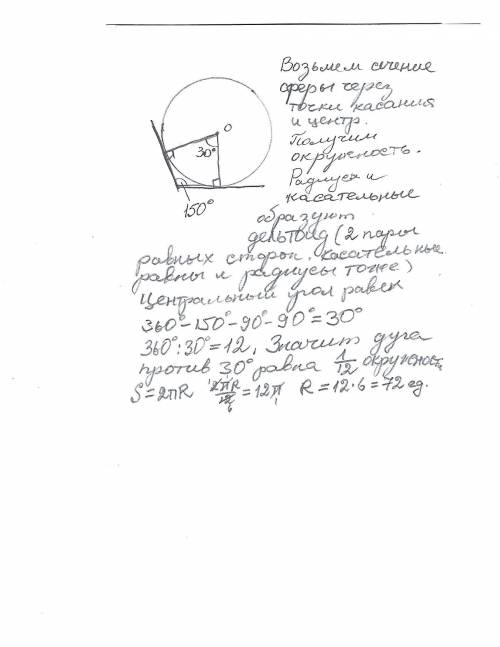 Возьмем сечение
сферы через
точки касания
и центр.
Получим
окружность.
Радиусы и
касательные
O
30°
150°
образуют
дельтоид (2 пары
равных сторон, касательные
равны и радиусы тоже)
Центральный угол равен
360°-150°-90°-90°=30°
360°:30°=12, Значит дуга
против 30° равна 1/12 окружности
S=2πR 2πR/12 6 =12π R=12·6=72 ед.